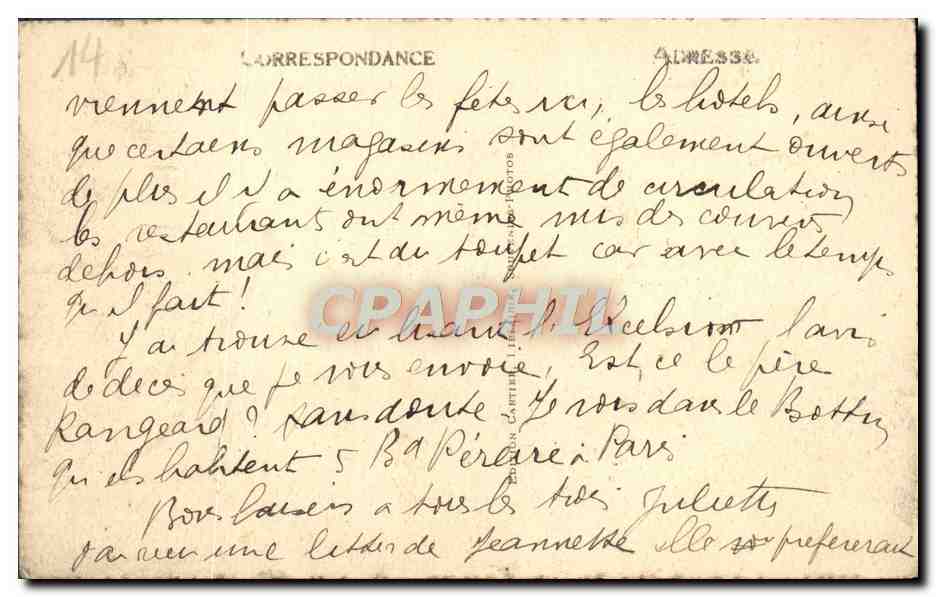 14
CORRESPONDANCE ADRESSE
viennent passer les fêtes ici, les hôtels, ainsi
que certains magasins sont également ouverts
de plus il y a énormement de circulation
les restaurant ont même mis des couverts
dehors. mais c'est du toupet car avec le temps
qu'il fait !
J'ai trouvé en lisant l'Excelsior l'avis
de décès que je vous envoie, Est-ce le père
Rangeard ? sans doute - Je vois dans le Bottin
qu'ils habitent 5 Bd Péreire à Paris
Bons baisers a tous les trois Juliette
une lettre de Jeannette elle prefererait
EDITION CARTIER
PHOTOS
CPAPHIL